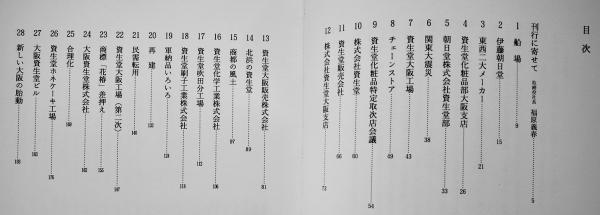 目次
刊行に寄せて 取締役社長 福原義春 5
1 船場 9
2 伊藤朝日堂 15
3 東西二大メーカー 21
4 資生堂化粧品部大阪支店 26
5 朝日堂株式会社資生堂部 33
6 関東大震災 38
7 資生堂大阪工場 43
8 チェーンストア 49
9 資生堂化粧品特定取次店会議 54
10 株式会社資生堂 60
11 資生堂販売会社 66
12 株式会社資生堂大阪支店 72
13 資生堂大阪販売株式会社 81
14 北浜の資生堂 89
15 商都の風土 97
16 資生堂化学工業株式会社 106
17 資生堂吹田分工場 112
18 資生堂刷子工業株式会社 118
19 軍納品いろいろ 124
20 再建 132
21 民需転用 140
22 資生堂大阪工場(第二次) 147
23 商標「花椿」差押え 155
24 大阪資生堂株式会社 162
25 合理化 169
26 資生堂ホルケーキ工場 176
27 大阪資生堂ビル 183
28 新しい大阪の胎動 188